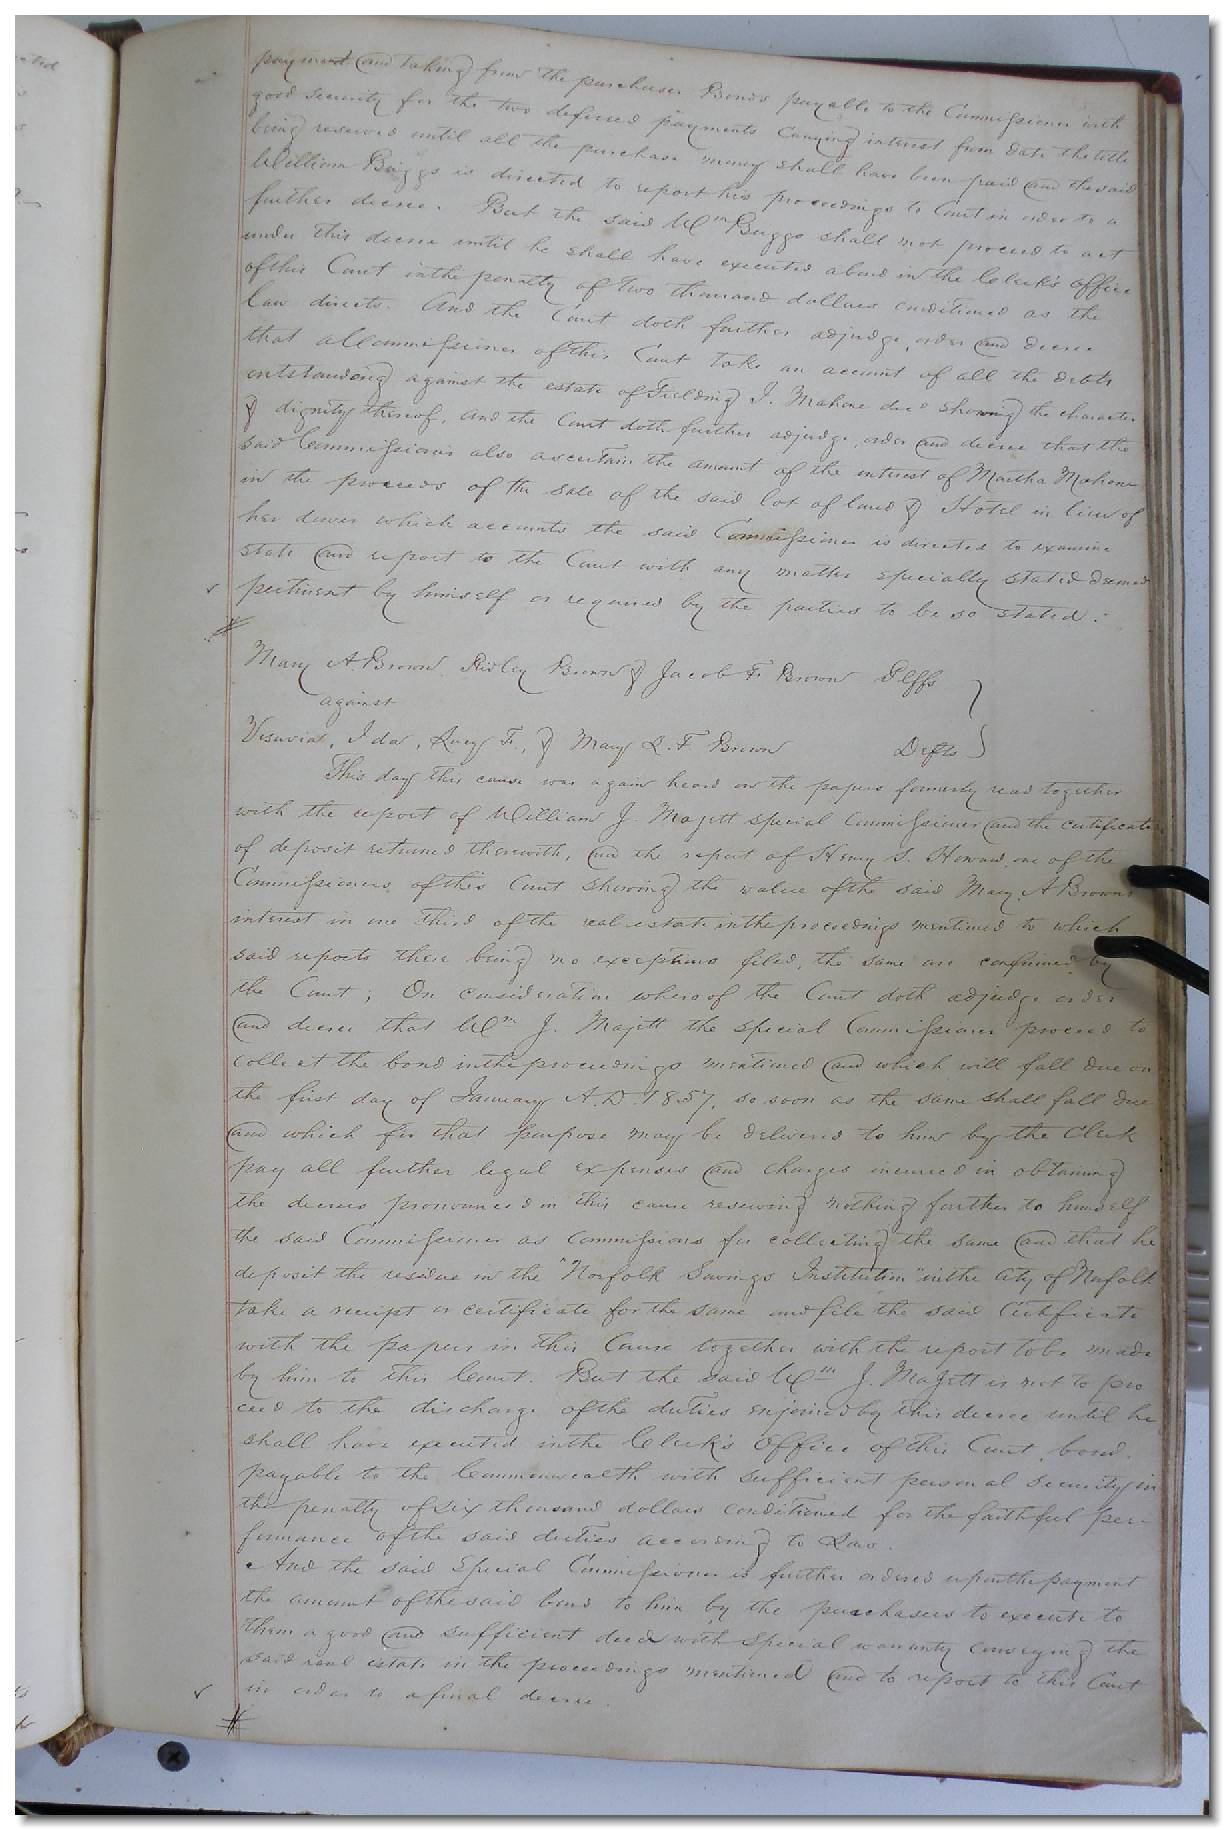 payment and taking from the purchaser Bonds payable to the Commissioner with
good security for the two deferred payments carrying interest from date the title
being reserved until all the purchase money shall have been paid and the said
William Briggs is directed to report his proceedings to Court in order to a
further decree. But the said Wm Briggs shall not proceed to act
under this decree until he shall have executed a bond in the Clerk's Office
of this Court in the penalty of two thousand dollars conditioned as the
law directs. And the Court doth further adjudge, order and decree
that a Commissioner of this Court take an account of all the debts
outstanding against the estate of Fielding J. Mahone decd showing the character
& dignity thereof, and the Court doth further adjudge, order and decree that the
said Commissioner also ascertain the amount of the interest of Martha Mahone
in the proceeds of the sale of the said lot of land & Hotel in lieu of
her dower which accounts the said Commissioner is directed to examine
state and report to the Court with any matter specially stated deemed
pertinent by himself or required by the parties to be so stated.
Mary A. Brown, Ridley Brown & Jacob F. Brown Plffs
against
Vesuvia, Ida, Lucy F., & Mary L. F Brown Defts
This day this cause was again heard on the papers formerly read together
with the report of William J. Majett special Commissioner and the certificate
of deposit returned therewith, and the report of Henry S. Howard one of the
Commissioners of this Court showing the value of the said Mary A Browns
interest in one third of the real estate in the proceedings mentioned to which
said reports there being no exceptions filed, the same are confirmed by
the Court; On consideration whereof the Court doth adjudge order
and decree that Wm J. Majett the special Commissioner proceed to
collect the bond in the proceedings mentioned and which will fall due on
the first day of January A.D. 1857, so soon as the same shall fall due
and which for that purpose may be delivered to him by the Clerk
pay all further legal expenses and charges incurred in obtaining
the decrees pronounced in this cause reserving nothing further to himself
the said Commissioner as commissions for collecting the same and that he
deposit the residue in the "Norfolk Savings Institution" in the City of Norfolk
take a receipt or certificate for the same and file the said Certificate
with the papers in this Cause together with the report to be made
by him to this Court. But the said Wm J. Majett is not to pro
ceed to the discharge of the duties enjoined by this decree until he
shall have executed in the Clerk's Office of this Court bond
payable to the Commonwealth with sufficient personal security in
the penalty of six thousand dollars conditioned for the faithful per-
formance of the said duties according to Law.
And the said Special Commissioner is further ordered upon the payment
the amount of the said bond to him by the purchasers to execute to
them a good and sufficient deed with special warranty conveying the
said real estate in the proceedings mentioned and to report to this Court
in order to a final decree.